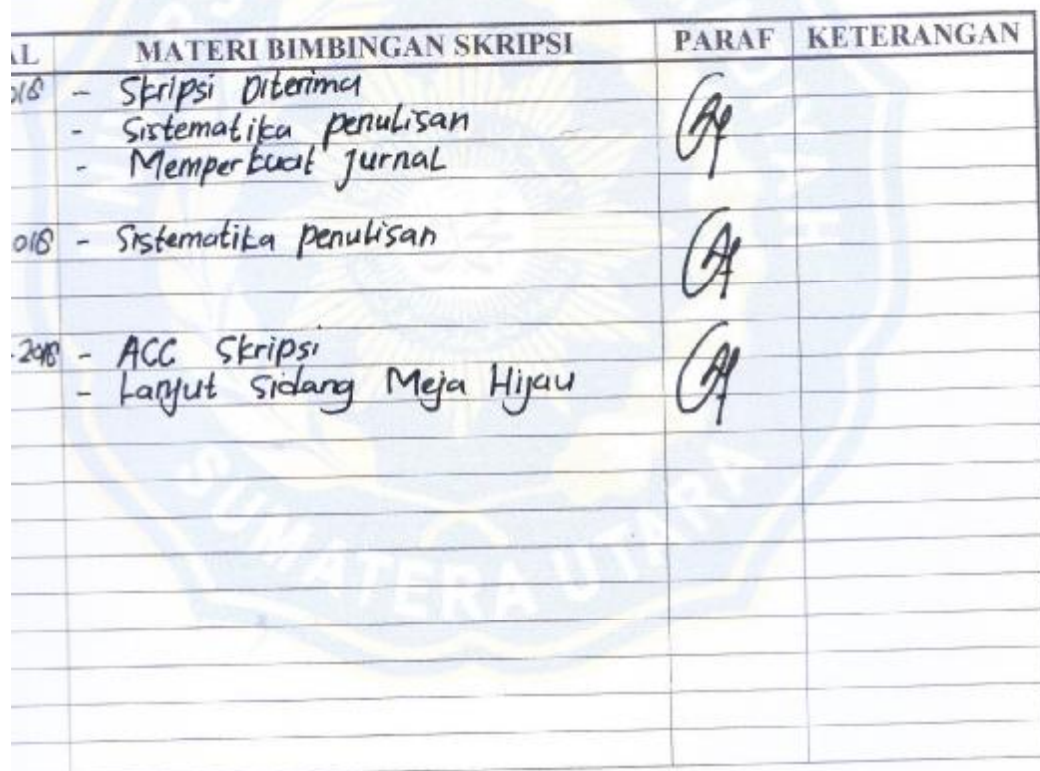 AL MATERI BIMBINGAN SKRIPSI PARAF KETERANGAN
018 - Skripsi Diterima
- Sistematika penulisan
- Memperkuat Jurnal
018 - Sistematika penulisan
-2018 - ACC Skripsi
- Lanjut Sidang Meja Hijau
SUMATERA UTARA